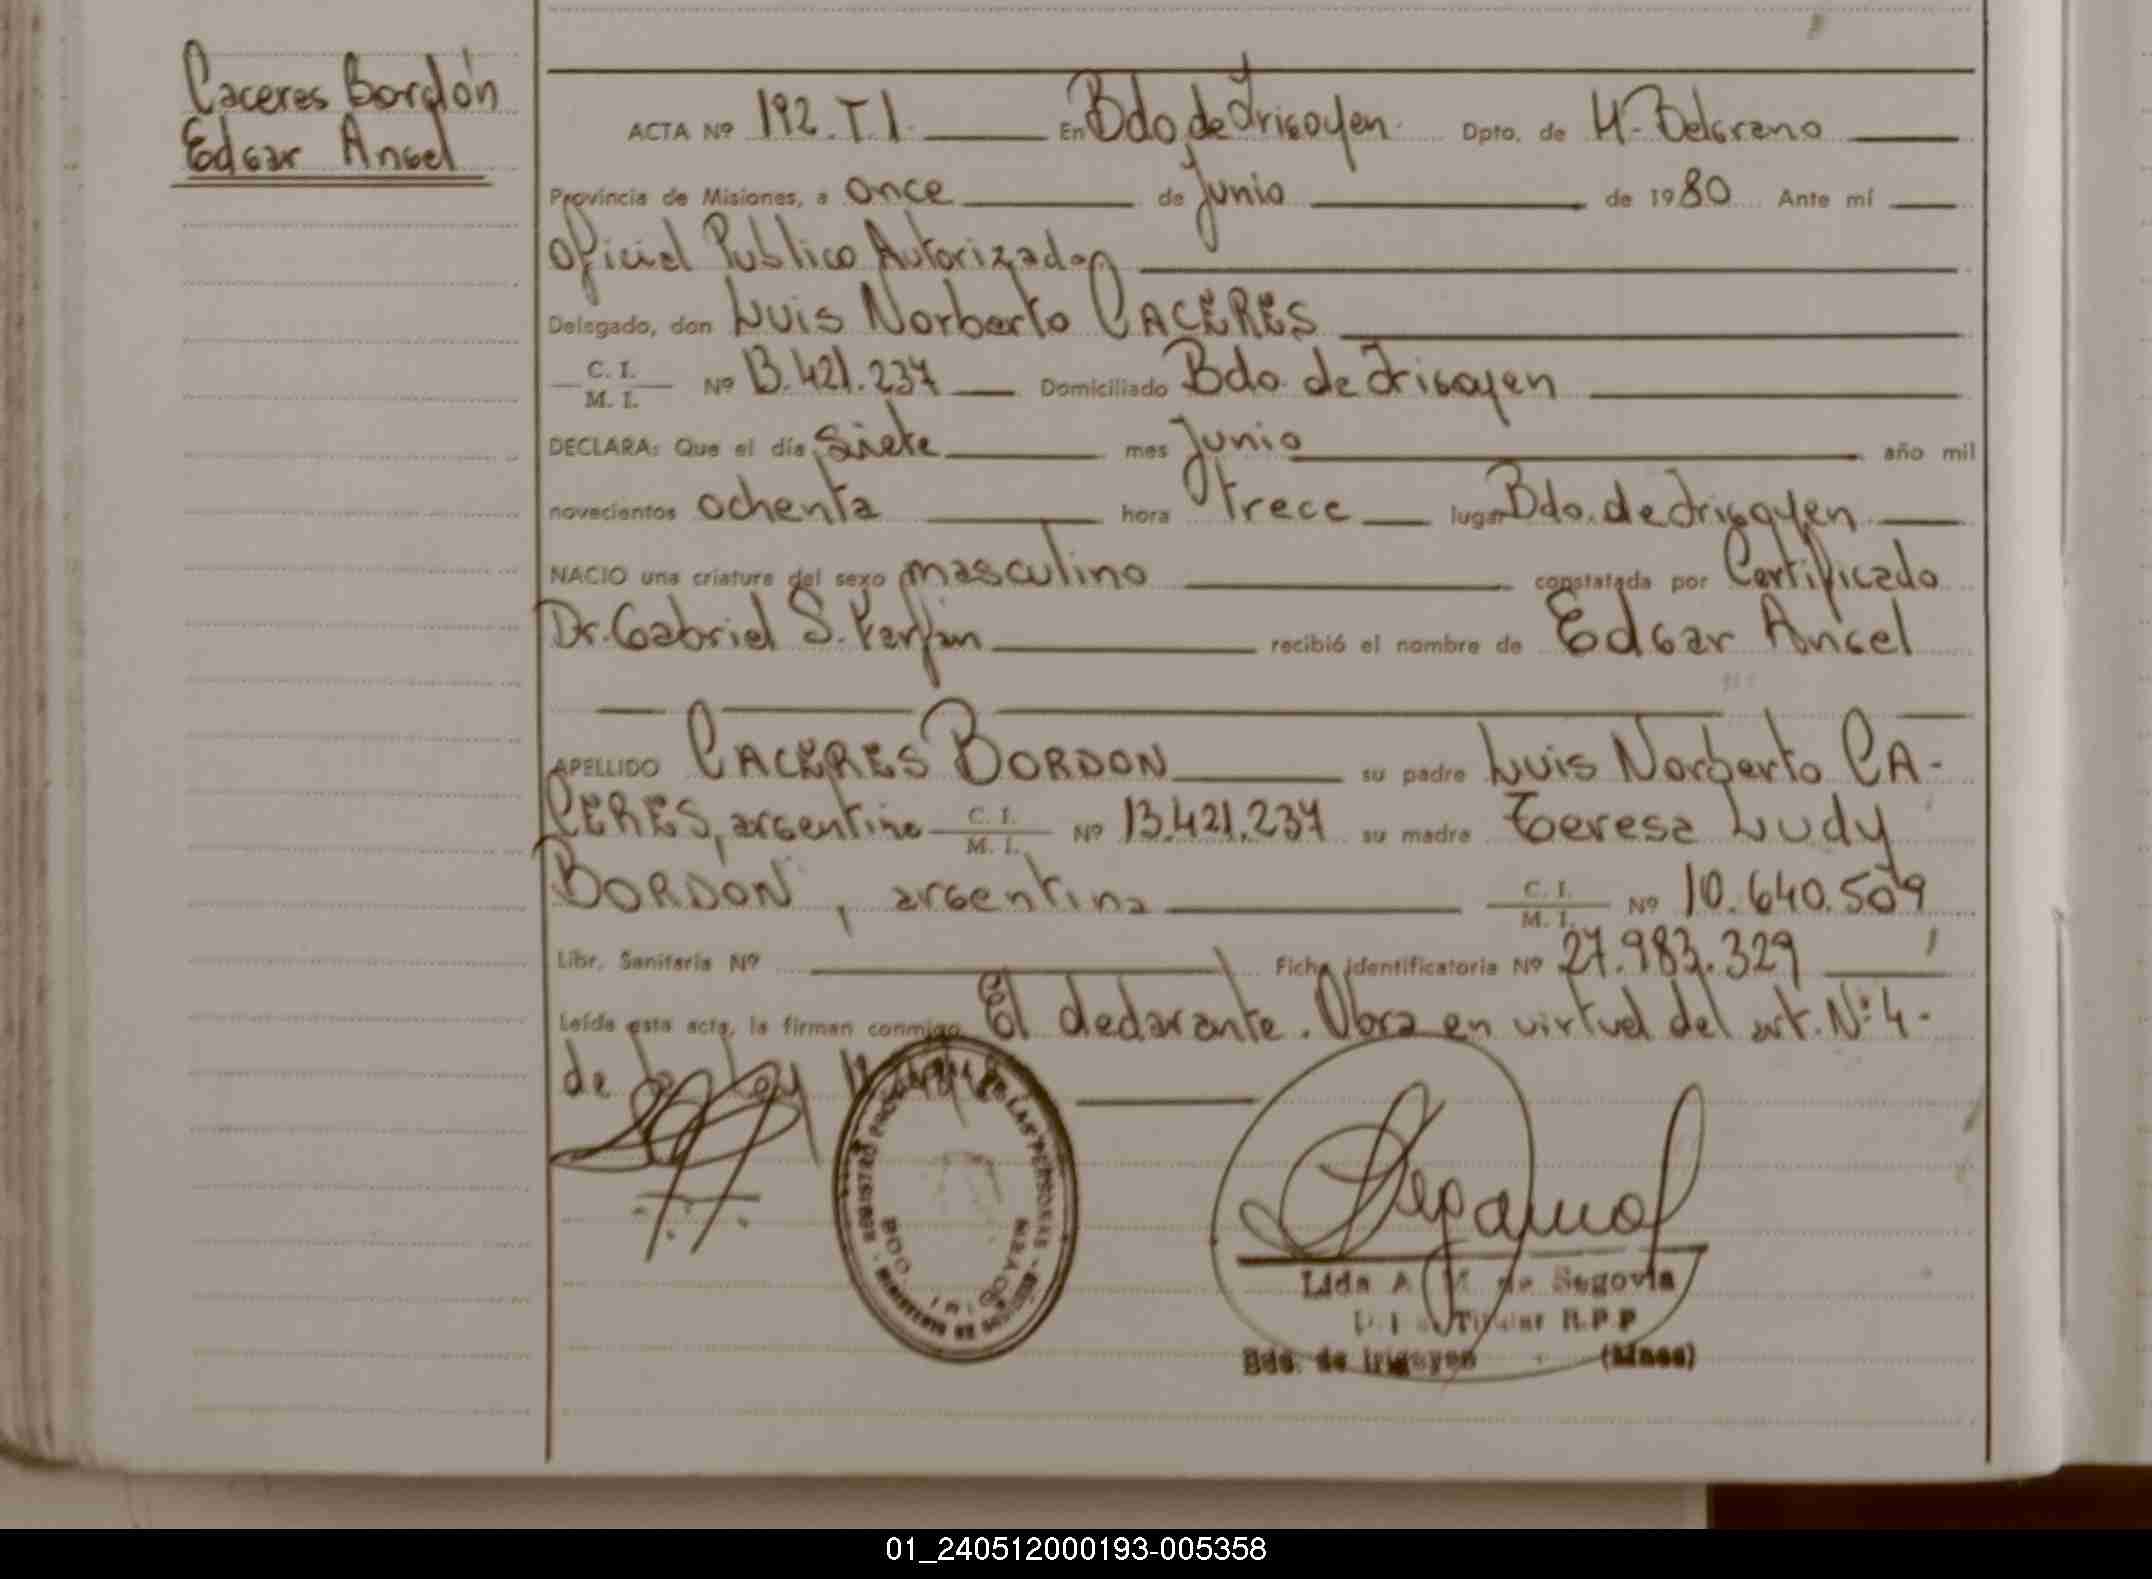 Caceres Bordón
Edgar Angel
ACTA Nº 192. T I. En Bdo. de Irigoyen. Dpto. de M. Belgrano
Provincia de Misiones, a once de Junio de 1980 Ante mí
Oficial Publico Autorizado
Delegado, don Luis Norberto CACERES
C. I.
M. I. Nº 13.421.237 Domiciliado Bdo. de Irigoyen
DECLARA: Que el día siete mes Junio año mil
novecientos ochenta hora trece lugar Bdo. de Irigoyen
NACIO una criatura del sexo masculino constatada por Certificado
Dr. Gabriel S. recibió el nombre de Edgar Angel
APELLIDO CACERES BORDON su padre Luis Norberto CA-
CERES, argentino C. I. M. I. Nº 13.421.237 su madre Teresa Ludy
BORDON, argentina C. I. M. I. Nº 10.640.509
Libr. Sanitaria Nº Ficha identificatoria Nº 27.983.329
Leída esta acta, la firman conmigo El declarante. Obra en virtud del art. Nº 4.
de la Ley
REGISTRO PROVINCIAL DE LAS PERSONAS
BDO. IRIGOYEN
Lida A. M. de Segovia
Titular R.P.P
Bdo. de Irigoyen (Mnes)
01_240512000193-005358